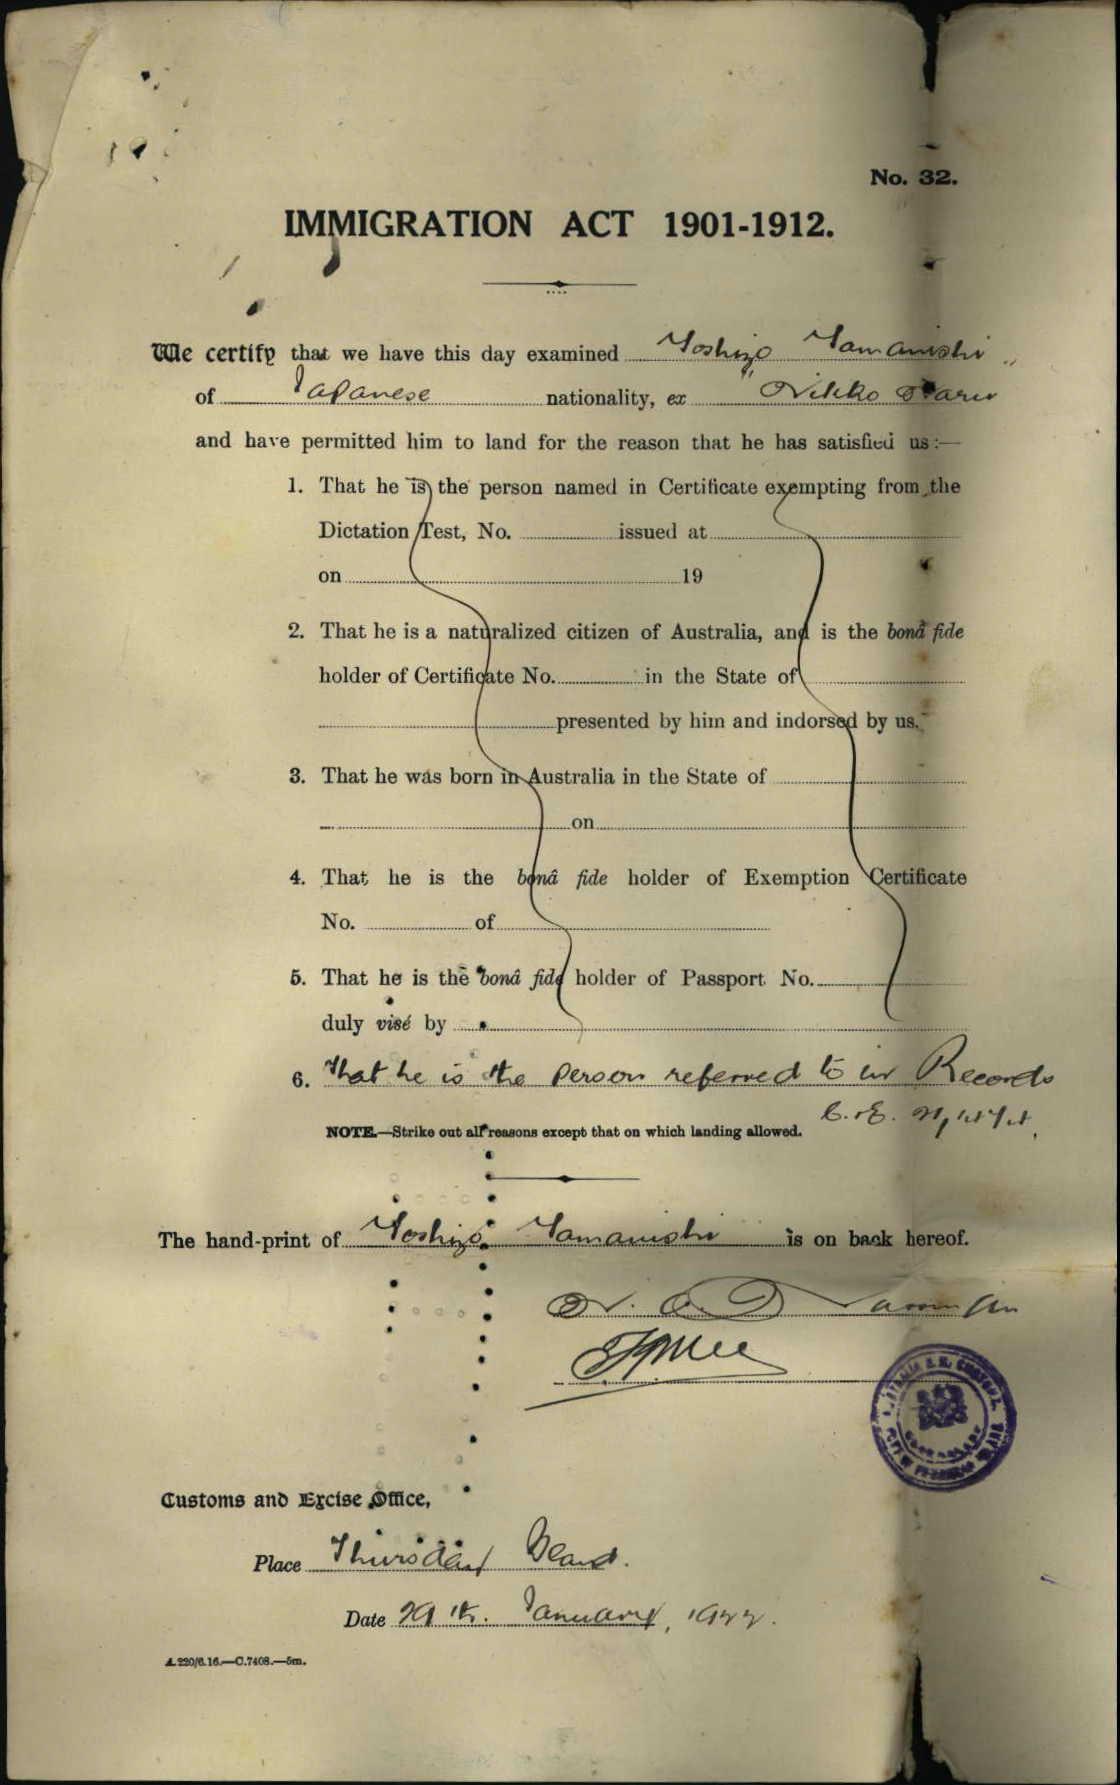 No. 32.
IMMIGRATION ACT 1901-1912.
We certify that we have this day examined Yoshizo Yamanishi
of Japanese nationality, ex "Nikko Maru"
and have permitted him to land for the reason that he has satisfied us:—
1. That he is the person named in Certificate exempting from the
Dictation Test, No. issued at
on 19
2. That he is a naturalized citizen of Australia, and is the bonâ fide
holder of Certificate No. in the State of
presented by him and indorsed by us.
3. That he was born in Australia in the State of
on
4. That he is the bonâ fide holder of Exemption Certificate
No. of
5. That he is the bonâ fide holder of Passport No.
duly visé by
6. That he is the person referred to in Records
C. & E.
NOTE.—Strike out all reasons except that on which landing allowed.
The hand-print of Yoshizo Yamanishi is on back hereof.
Customs and Excise Office,
Place Thursday Island.
Date 29th. January, 1922.
A.220/6.16.—C.7408.—5m.